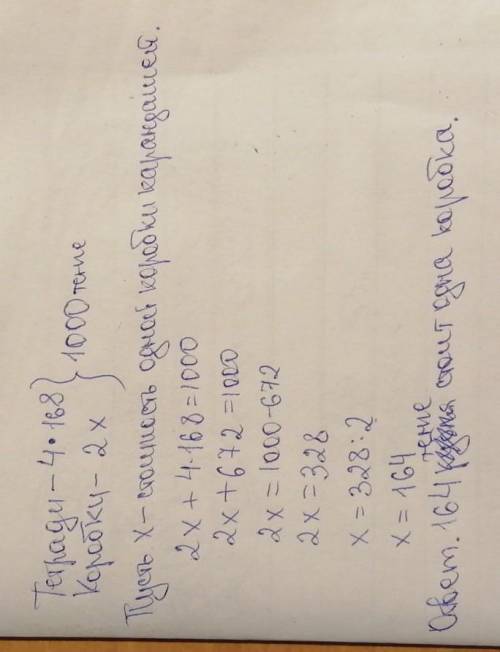 Тетради – 4 • 168 } 1000 тенге
Коробки – 2x
Пусть x – стоимость одной коробки карандашей.
2x + 4·168 = 1000
2x + 672 = 1000
2x = 1000 - 672
2x = 328
x = 328 : 2
x = 164
Ответ. 164 тенге стоит одна коробка.